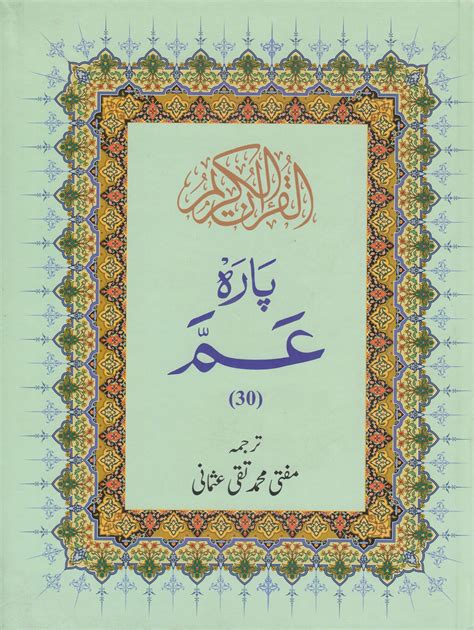 القرآن الكريم
پارہ
عَمَّ
(30)
ترجمہ
مفتی محمد تقی عثمانی